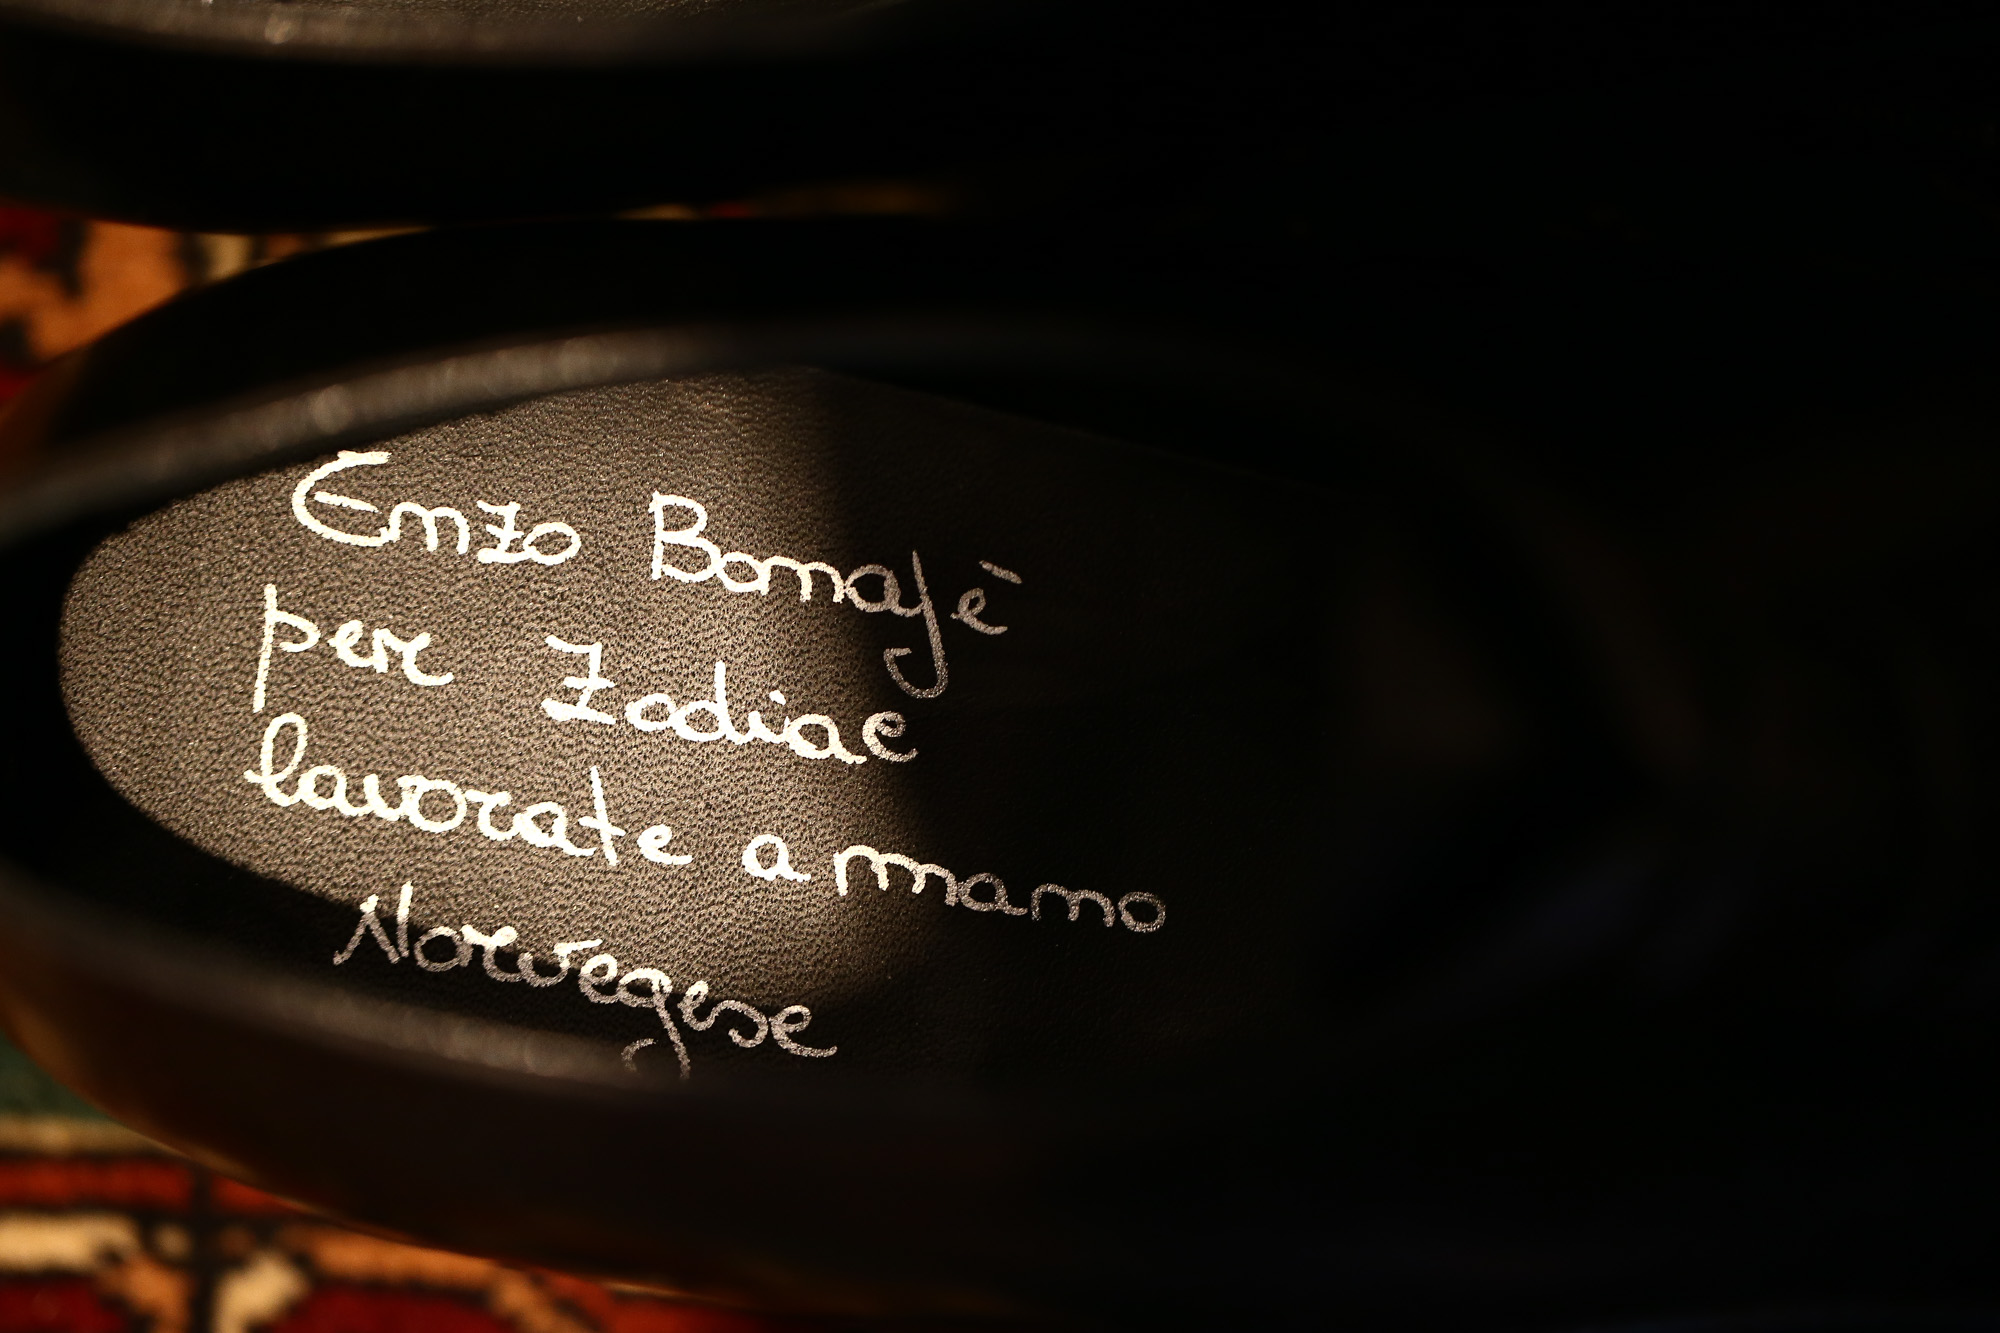 Enzo Bonafè
per Zodiac
lavorate a mano
Norvegese